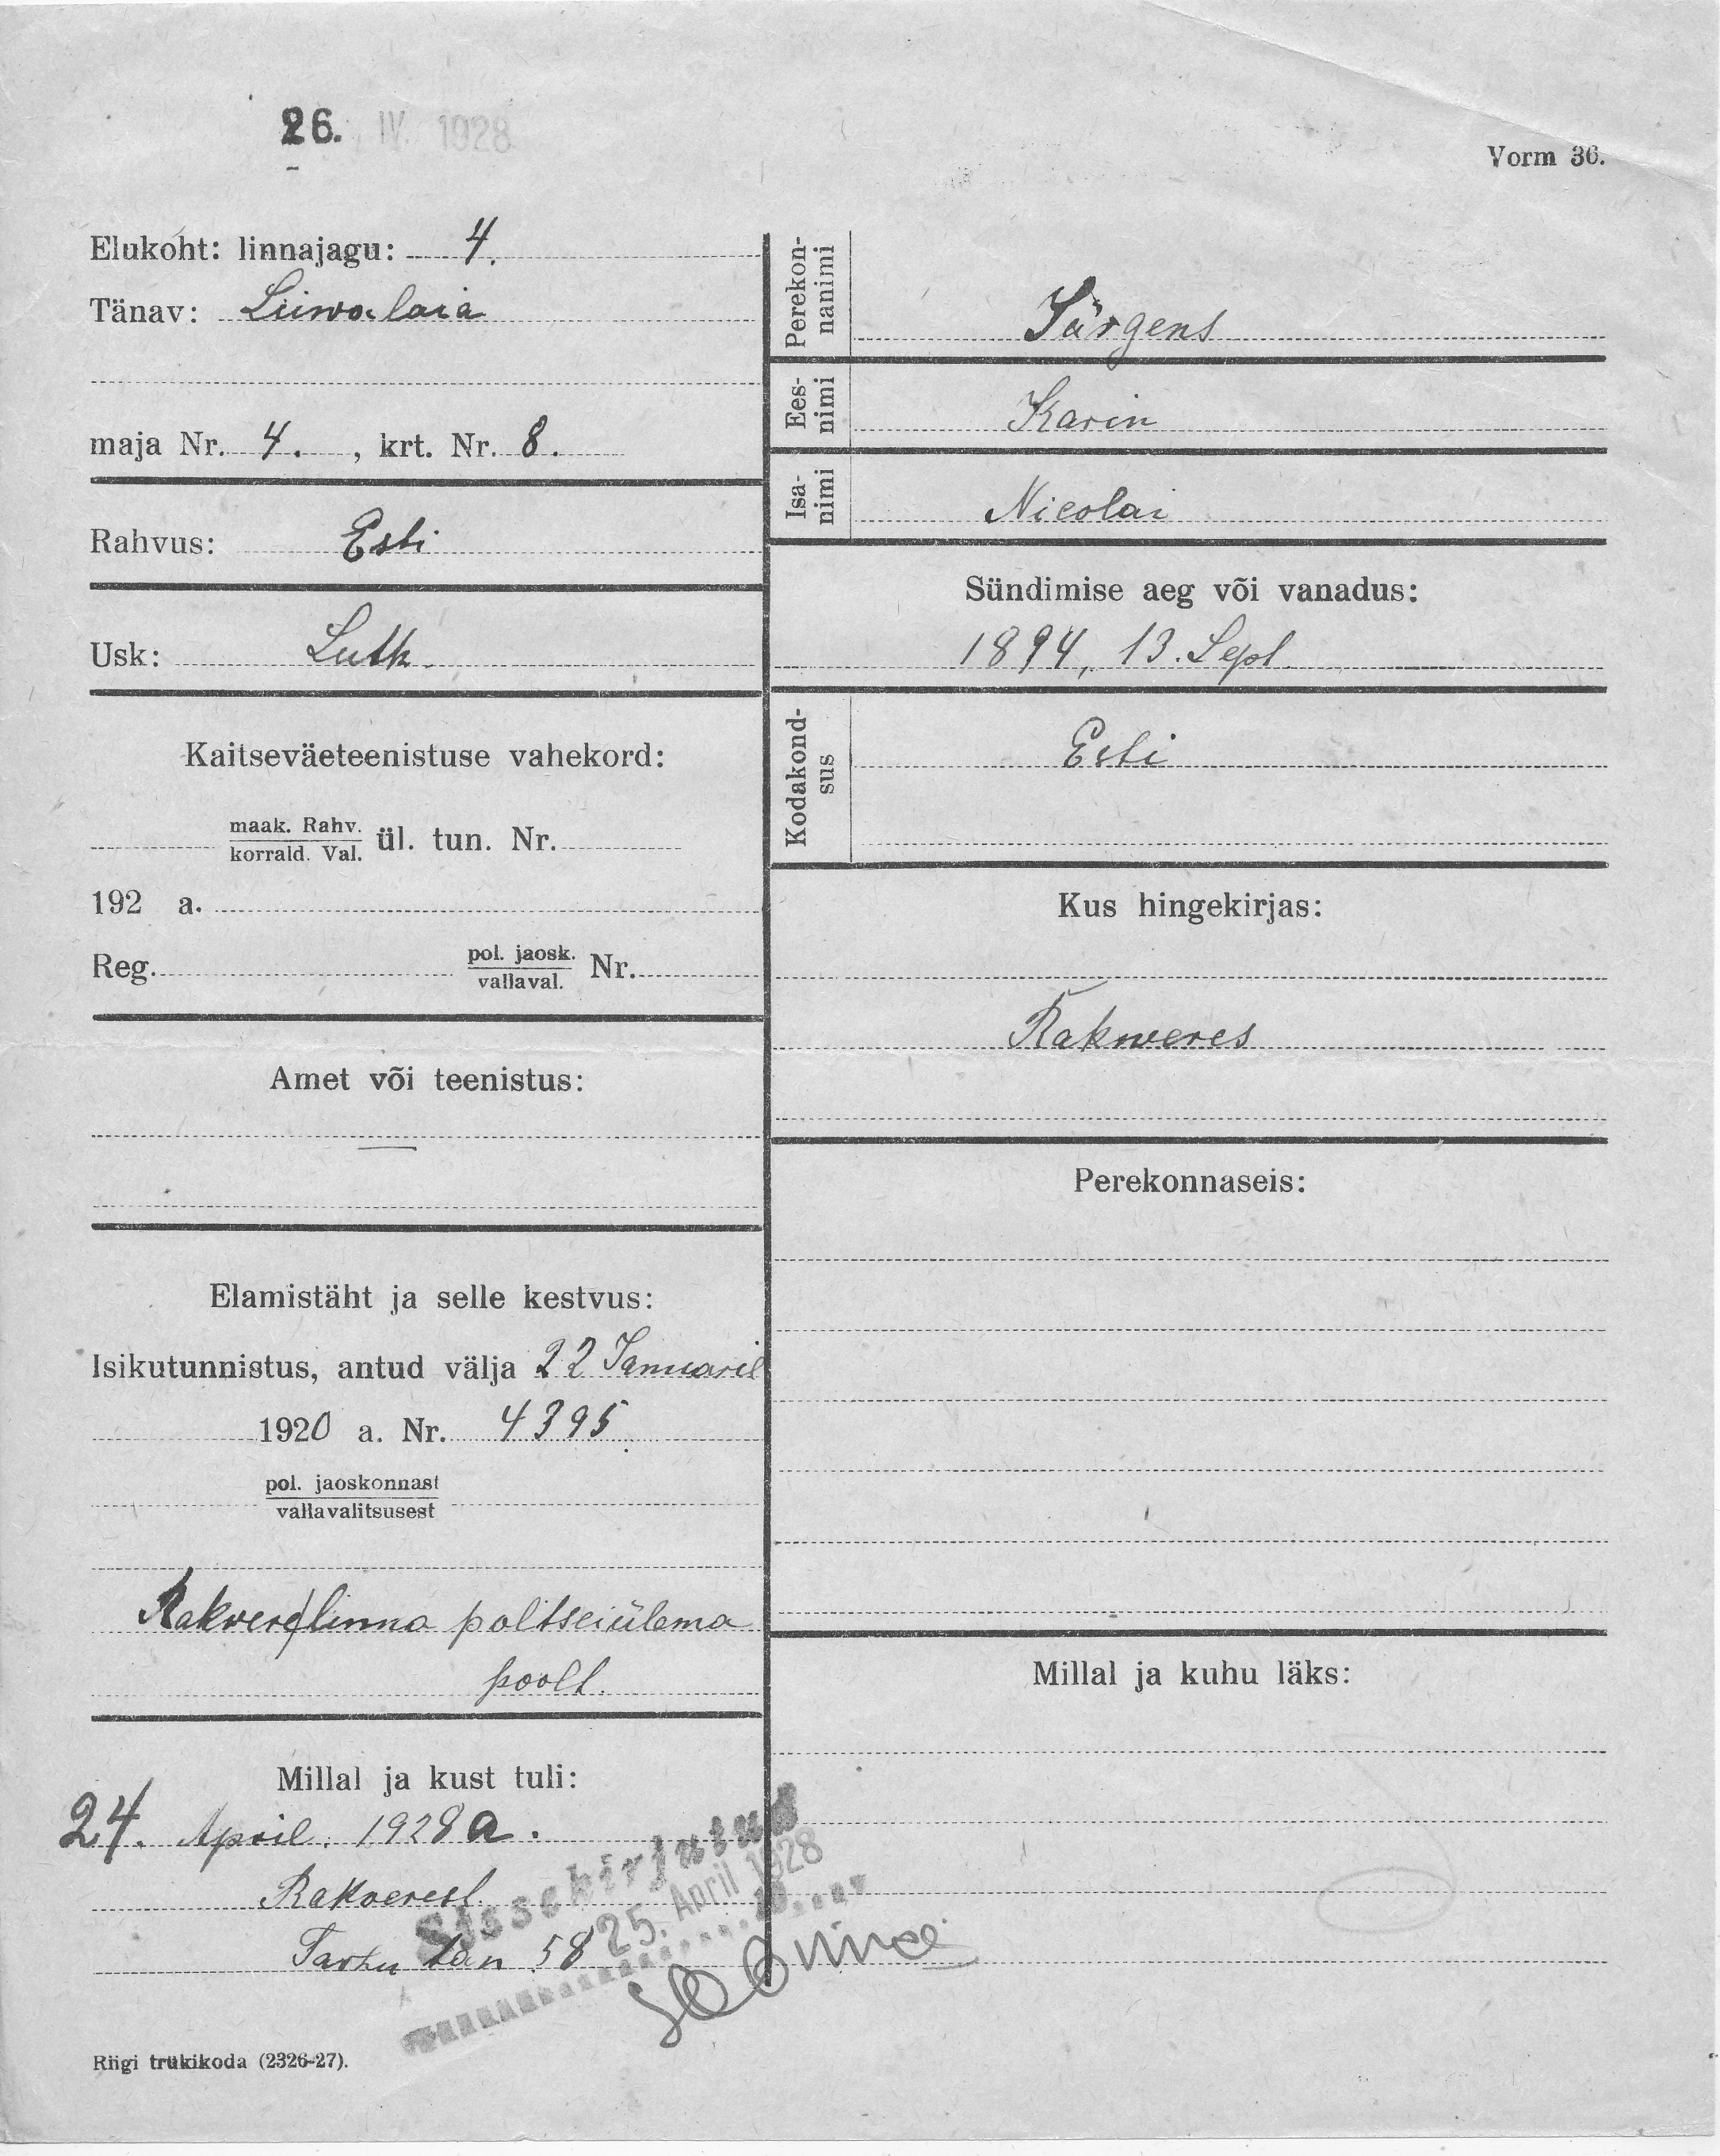 26. IV. 1928
Vorm 36.
Elukoht: linnajagu: 4.
Tänav: Liiwalaia
maja Nr. 4. , krt. Nr. 8.
Rahvus: Esti
Usk: Luth.
Kaitseväeteenistuse vahekord:
maak. Rahv.
korrald. Val.
ül. tun. Nr.
192 a.
Reg. pol. jaosk. Nr.
vallaval.
Amet või teenistus:
—
Elamistäht ja selle kestvus:
Isikutunnistus, antud välja 22 Januaril
1920 a. Nr. 4395.
pol. jaoskonnast
vallavalitsusest
Rakvere linna politseiülema
poolt.
Millal ja kust tuli:
24. April. 1928 a.
Rakverest.
Tartu tän 58
Sissekirjutud
25. April 1928
Riigi trükikoda (2326-27).
Perekon-
nanimi
Jürgens
Ees-
nimi
Karin
Isa-
nimi
Nicolai
Sündimise aeg või vanadus:
1894, 13. Sept.
Kodakond-
sus
Esti
Kus hingekirjas:
Rakweres
Perekonnaseis:
Millal ja kuhu läks: